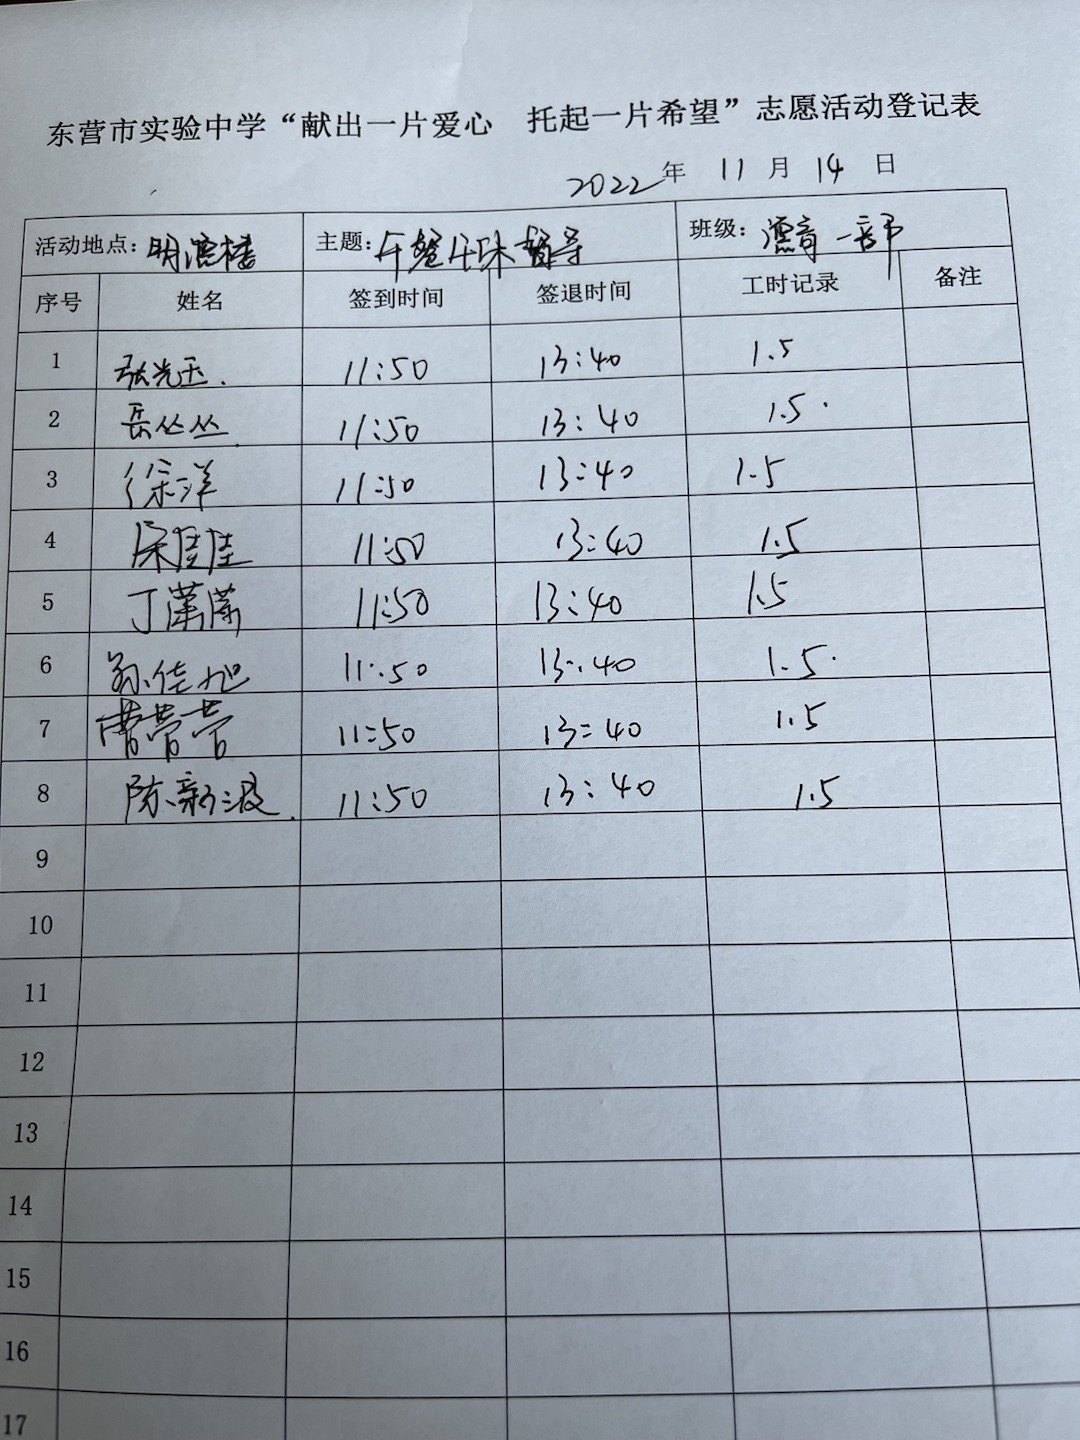 东营市实验中学“献出一片爱心 托起一片希望”志愿活动登记表
2022年 11 月 14 日
活动地点：明德楼 主题：午餐午休督导 班级：德育一部
序号 姓名 签到时间 签退时间 工时记录 备注
1 张光玉. 11:50 13:40 1.5
2 岳丛丛. 11:50 13:40 1.5.
3 徐洋 11:50 13:40 1.5
4 佳佳 11:50 13:40 1.5
5 丁潇潇 11:50 13:40 1.5
6 孙佳旭 11:50 13:40 1.5.
7 曹营营 11:50 13:40 1.5
8 陈新波. 11:50 13:40 1.5
9
10
11
12
13
14
15
16
17